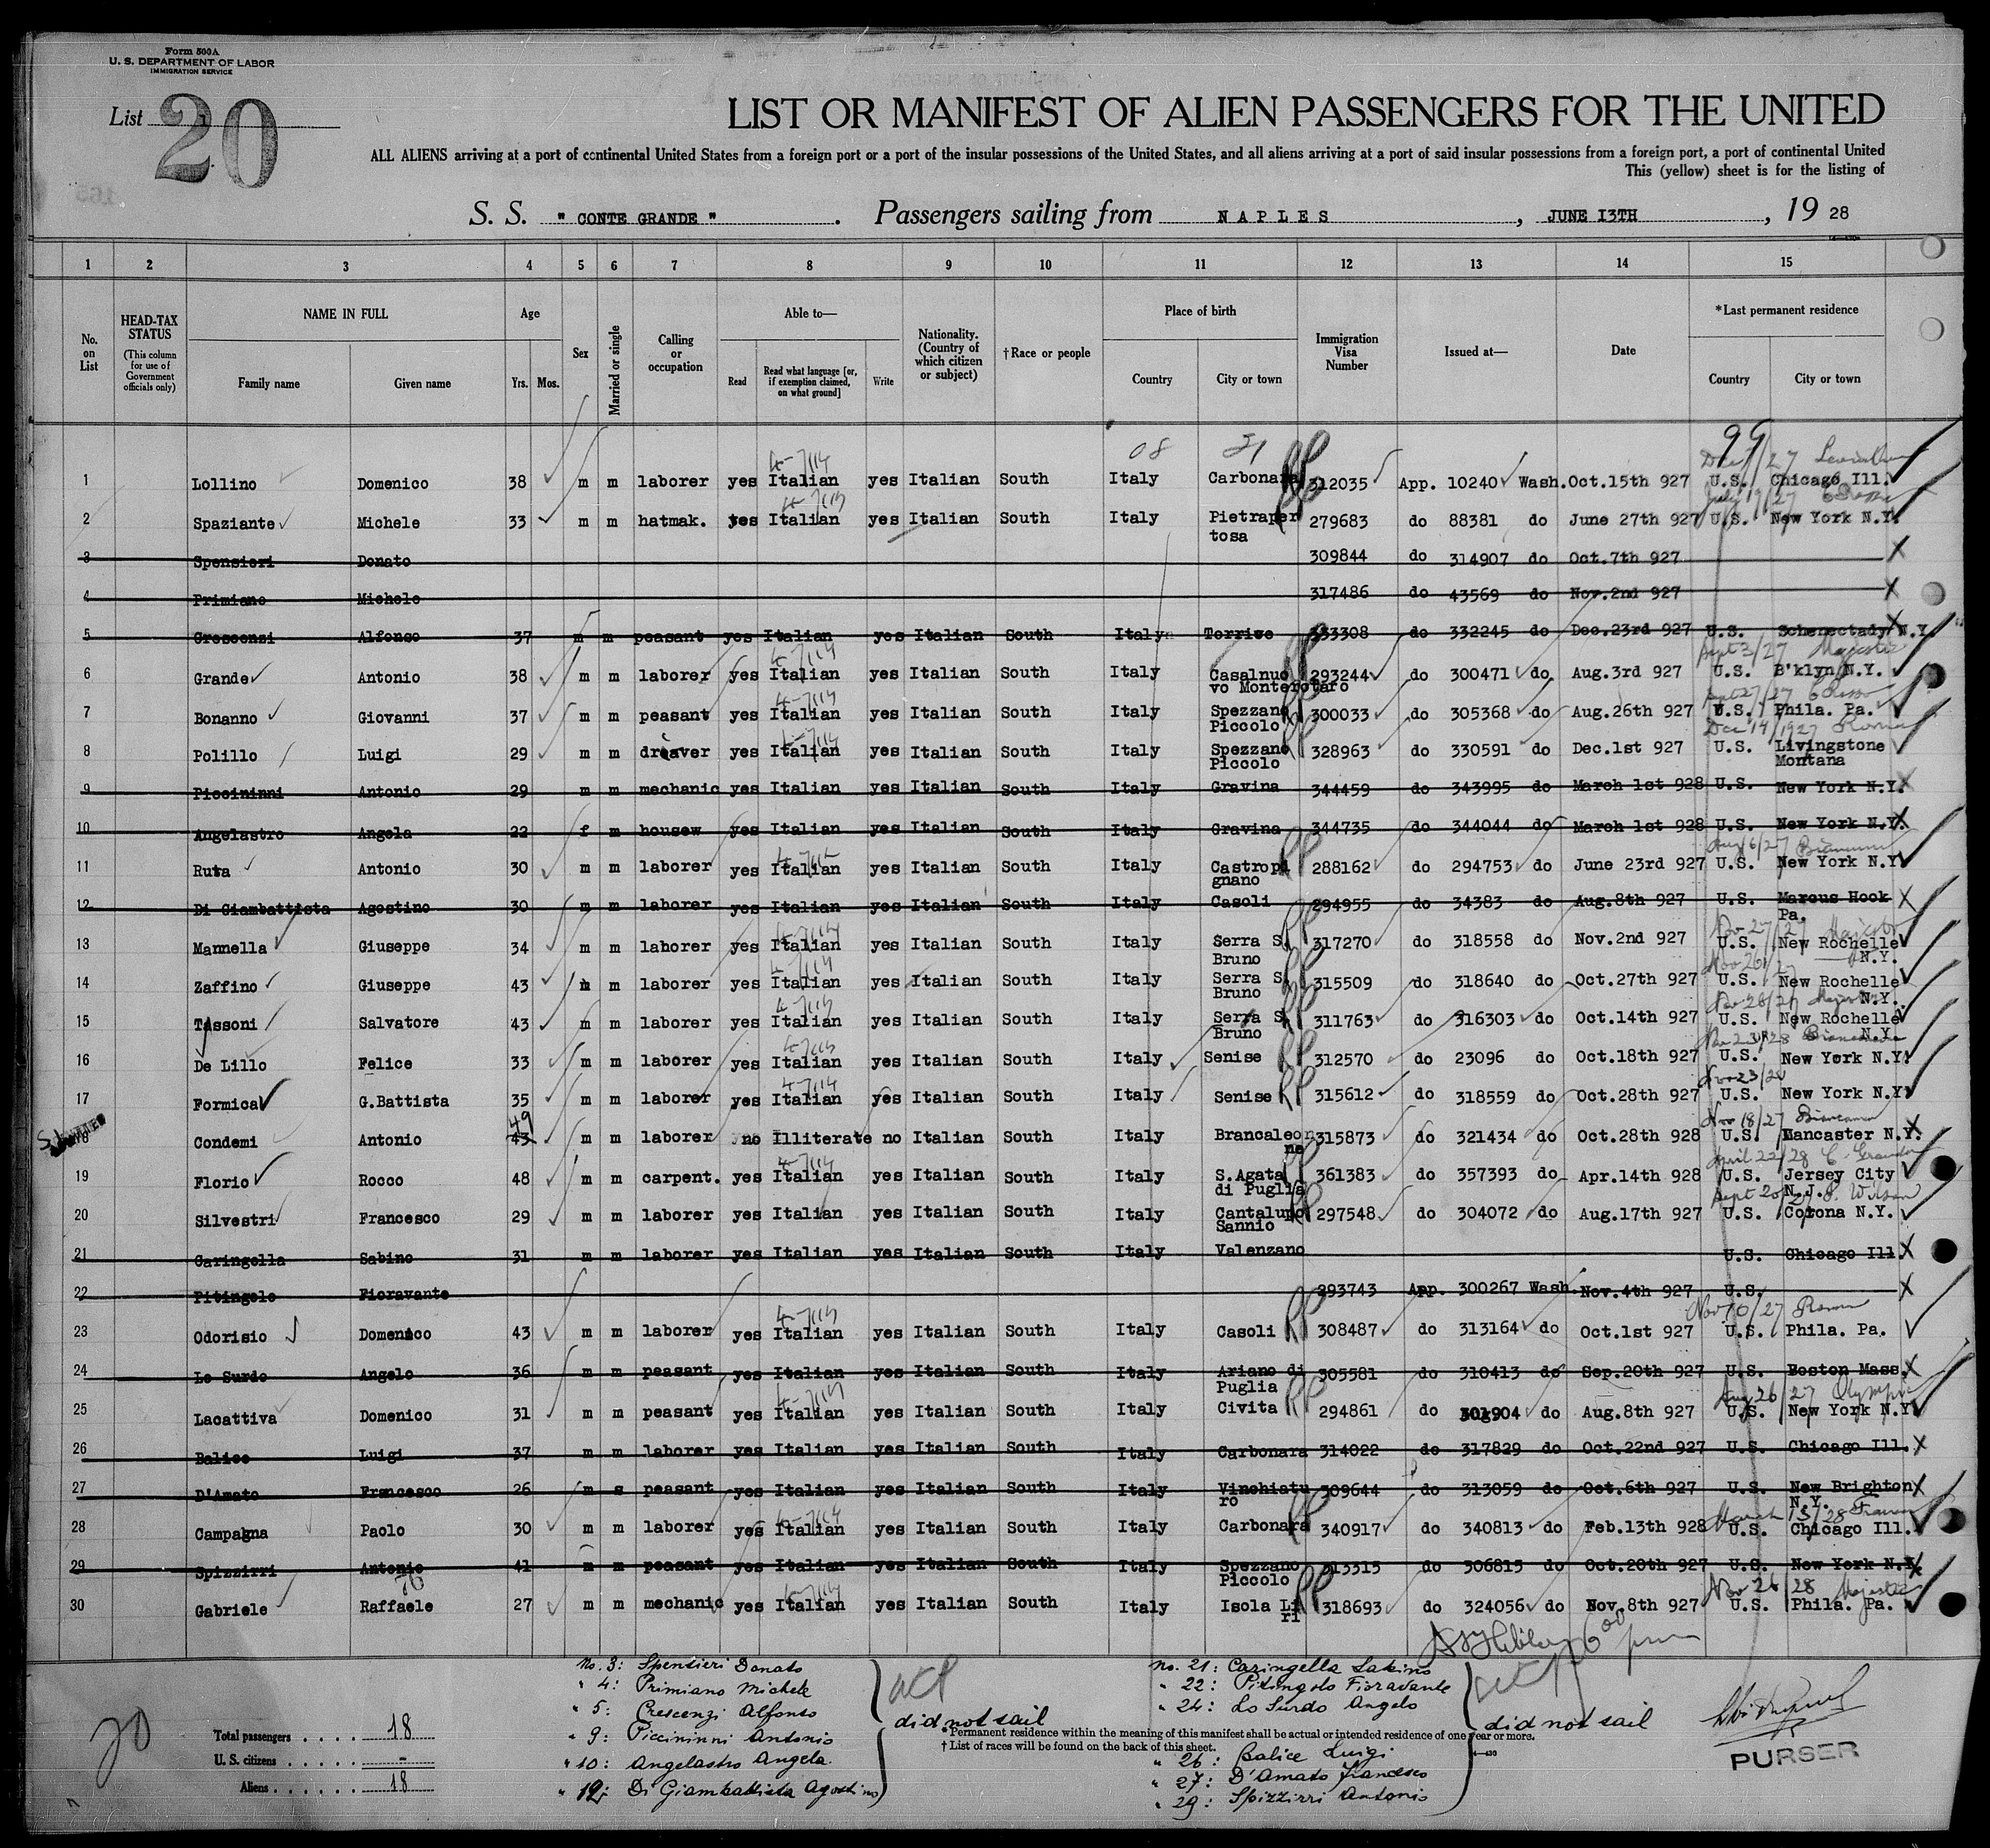 Form 500A
U. S. DEPARTMENT OF LABOR
IMMIGRATION SERVICE
List 20
LIST OR MANIFEST OF ALIEN PASSENGERS FOR THE UNITED
ALL ALIENS arriving at a port of continental United States from a foreign port or a port of the insular possessions of the United States, and all aliens arriving at a port of said insular possessions from a foreign port, a port of continental United
This (yellow) sheet is for the listing of
S. S. " CONTE GRANDE " . Passengers sailing from NAPLES , JUNE I3TH , 19 28
1 2 3 4 5 6 7 8 9 10 11 12 13 14 15
No. on List
HEAD-TAX STATUS (This column for use of Government officials only)
NAME IN FULL Family name Given name
Age Yrs. Mos.
Sex
Married or single
Calling or occupation
Able to— Read Read what language [or, if exemption claimed, on what ground] Write
Nationality. (Country of which citizen or subject)
†Race or people
Place of birth Country City or town
Immigration Visa Number
Issued at—
Date
*Last permanent residence Country City or town
08 99
1 Lollino Domenico 38 m m laborer yes Italian yes Italian South Italy Carbonara 312035 App. 10240 Wash. Oct.15th 927 U.S. Chicago Ill.
2 Spaziante Michele 33 m m hatmak. yes Italian yes Italian South Italy Pietraper tosa 279683 do 88381 do June 27th 927 U.S. New York N.Y.
3 Spensieri Donato 309844 do 314907 do Oct.7th 927
4 Primiano Michele 317486 do 43569 do Nov.2nd 927
5 Crescenzi Alfonso 37 m m peasant yes Italian yes Italian South Italy Torrice 333308 do 332245 do Dec.23rd 927 U.S. Schenectady N.Y.
Sept 3/27 Majestic
6 Grande Antonio 38 m m laborer yes Italian yes Italian South Italy Casalnuo vo Monterotaro 293244 do 300471 do Aug.3rd 927 U.S. B'klyn N.Y.
7 Bonanno Giovanni 37 m m peasant yes Italian yes Italian South Italy Spezzano Piccolo 300033 do 305368 do Aug.26th 927 U.S. Phila. Pa.
Dec 14/1927 Roma
8 Polillo Luigi 29 m m driaver yes Italian yes Italian South Italy Spezzano Piccolo 328963 do 330591 do Dec.1st 927 U.S. Livingstone Montana
9 Piccininni Antonio 29 m m mechanic yes Italian yes Italian South Italy Gravina 344459 do 343995 do March 1st 928 U.S. New York N.Y.
10 Angelastro Angela 22 f m housew yes Italian yes Italian South Italy Gravina 344735 do 344044 do March 1st 928 U.S. New York N.Y.
11 Ruta Antonio 30 m m laborer yes Italian yes Italian South Italy Castropi gnano 288162 do 294753 do June 23rd 927 U.S. New York N.Y.
12 Di Giambattista Agostino 30 m m laborer yes Italian yes Italian South Italy Casoli 294955 do 34383 do Aug.8th 927 U.S. Marcus Hook Pa.
13 Mannella Giuseppe 34 m m laborer yes Italian yes Italian South Italy Serra S. Bruno 317270 do 318558 do Nov.2nd 927 U.S. New Rochelle N.Y.
14 Zaffino Giuseppe 43 m m laborer yes Italian yes Italian South Italy Serra S. Bruno 315509 do 318640 do Oct.27th 927 U.S. New Rochelle N.Y.
15 Tassoni Salvatore 43 m m laborer yes Italian yes Italian South Italy Serra S. Bruno 311763 do 316303 do Oct.14th 927 U.S. New Rochelle N.Y.
16 De Lillo Felice 33 m m laborer yes Italian yes Italian South Italy Senise 312570 do 23096 do Oct.18th 927 U.S. New York N.Y.
17 Formica G.Battista 35 m m laborer yes Italian yes Italian South Italy Senise 315612 do 318559 do Oct.28th 927 U.S. New York N.Y.
Nov 18/27
18 Condemi Antonio 43 49 m m laborer no Illiterate no Italian South Italy Brancaleon ne 315873 do 321434 do Oct.28th 928 U.S. Mancaster N.Y.
April 22/28 C. Grande
19 Florio Rocco 48 m m carpent. yes Italian yes Italian South Italy S.Agata di Puglia 361383 do 357393 do Apr.14th 928 U.S. Jersey City N.J.
20 Silvestri Francesco 29 m m laborer yes Italian yes Italian South Italy Cantalupo Sannio 297548 do 304072 do Aug.17th 927 U.S. Corona N.Y.
21 Caringella Sabino 31 m m laborer yes Italian yes Italian South Italy Valenzano U.S. Chicago Ill.
22 Pitingolo Fioravante 293743 App. 300267 Wash. Nov.4th 927 U.S.
Nov 10/27 Roma
23 Odorisio Domenico 43 m m laborer yes Italian yes Italian South Italy Casoli 308487 do 313164 do Oct.1st 927 U.S. Phila. Pa.
24 Lo Surdo Angelo 36 m m peasant yes Italian yes Italian South Italy Ariano di Puglia 305581 do 310413 do Sep.20th 927 U.S. Boston Mass.
Aug 26/27 Olympic
25 Lacattiva Domenico 31 m m peasant yes Italian yes Italian South Italy Civita 294861 do 301904 do Aug.8th 927 U.S. New York N.Y.
26 Balice Luigi 37 m m laborer yes Italian yes Italian South Italy Carbonara 314022 do 317829 do Oct.22nd 927 U.S. Chicago Ill.
27 D'Amato Francesco 26 m s peasant yes Italian yes Italian South Italy Vinchiatu ro 309644 do 313059 do Oct.6th 927 U.S. New Brighton N.Y.
28 Campagna Paolo 30 m m laborer yes Italian yes Italian South Italy Carbonara 340917 do 340813 do Feb.13th 928 U.S. Chicago Ill.
29 Spizzirri Antonio 41 m m peasant yes Italian yes Italian South Italy Spezzano Piccolo 313315 do 306815 do Oct.20th 927 U.S. New York N.Y.
Nov 26/28 Majestic
30 Gabriele Raffaele 27 m m mechanic yes Italian yes Italian South Italy Isola Li ri 318693 do 324056 do Nov.8th 927 U.S. Phila. Pa.
No. 3: Spensieri Donato
" 4: Primiano Michele
" 5: Crescenzi Alfonso
" 9: Piccininni Antonio
" 10: Angelastro Angela
" 12: Di Giambattista Agostino
did not sail
No. 21: Caringella Sabino
" 22: Pitingolo Fioravante
" 24: Lo Surdo Angelo
" 26: Balice Luigi
" 27: D'Amato Francesco
" 29: Spizzirri Antonio
did not sail
20
Total passengers . . . . 18
U. S. citizens . . . . . -
Aliens . . . . . . 18
* Permanent residence within the meaning of this manifest shall be actual or intended residence of one year or more.
† List of races will be found on the back of this sheet.
PURSER